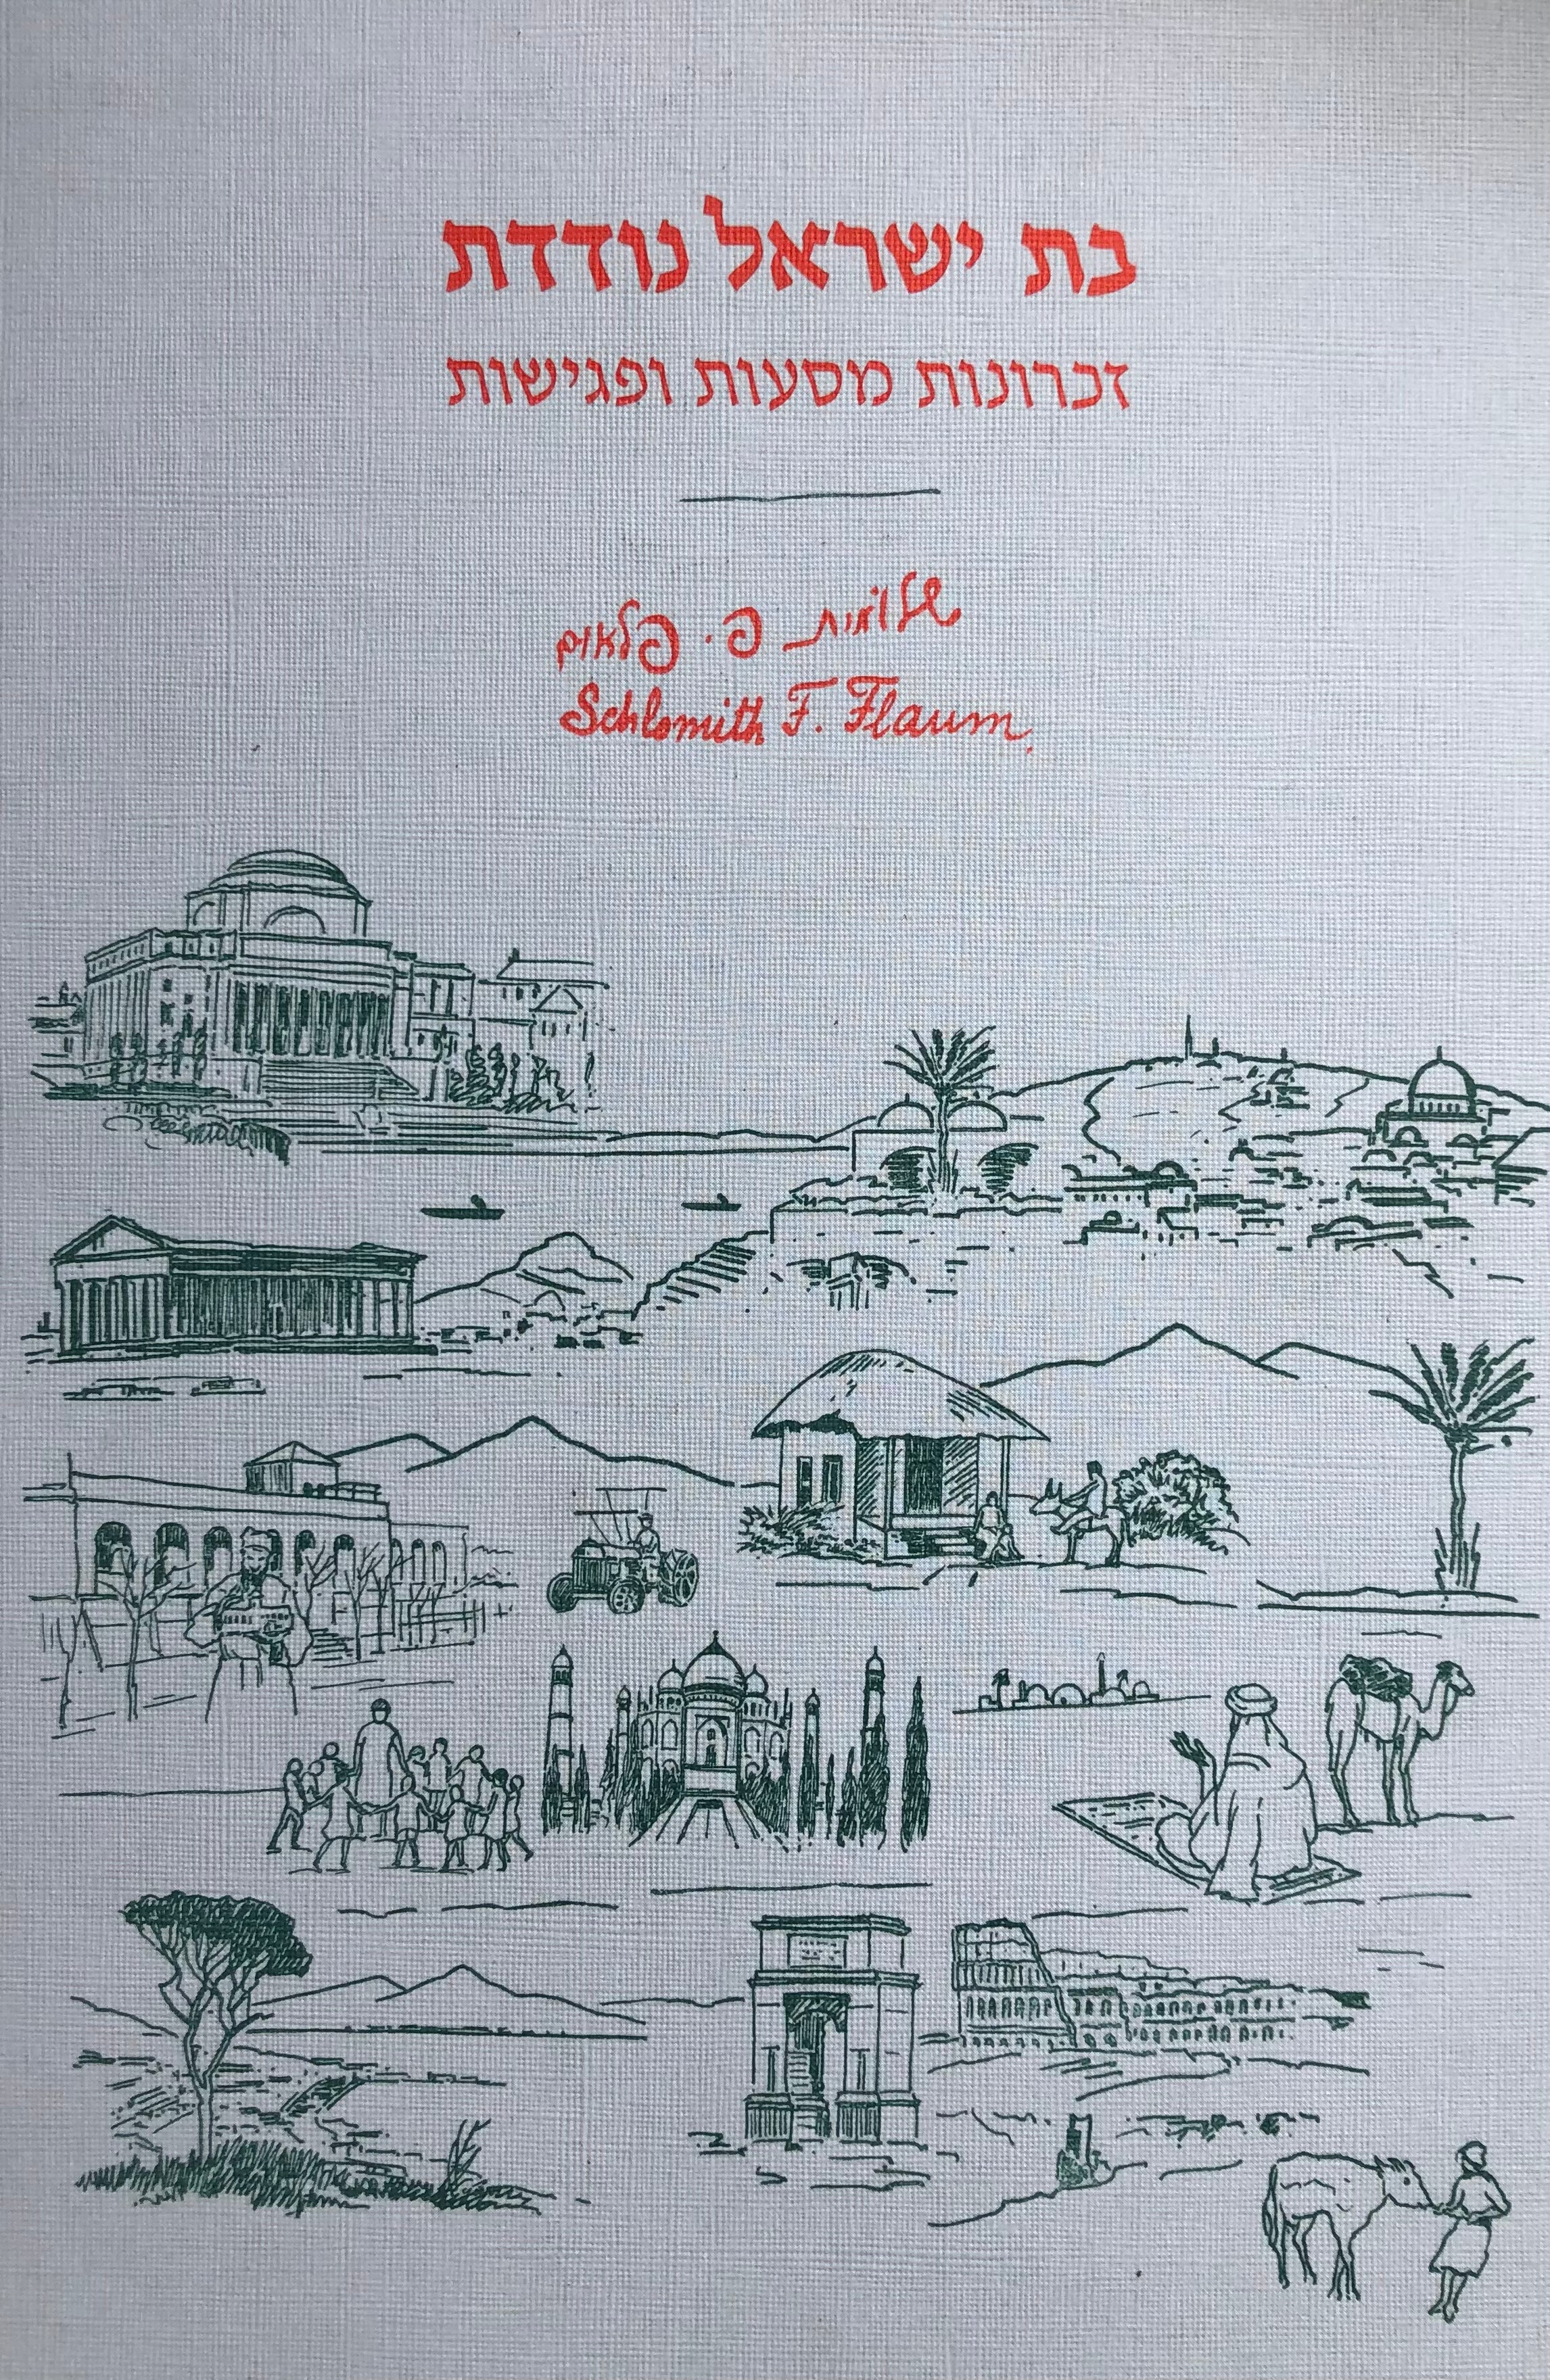 בת ישראל נודדת
זכרונות מסעות ופגישות
שלומית פ. פלאום
Schlomith F. Flaum.